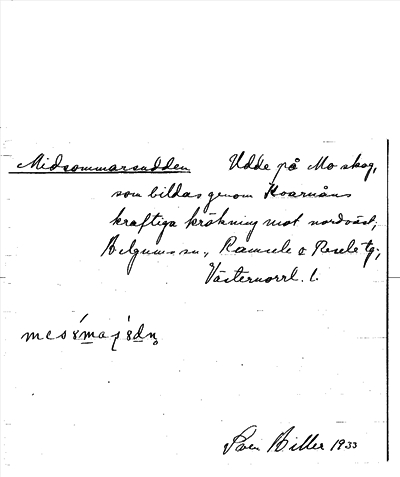 Midsommarsudden Udde på Mo skog,
som bildas genom Kvarnåns
kraftiga krökning mot nordväst;
Helgums sn., Ramsele o Resele tg;
Västernorrl. l.
Sven Hiller 1933